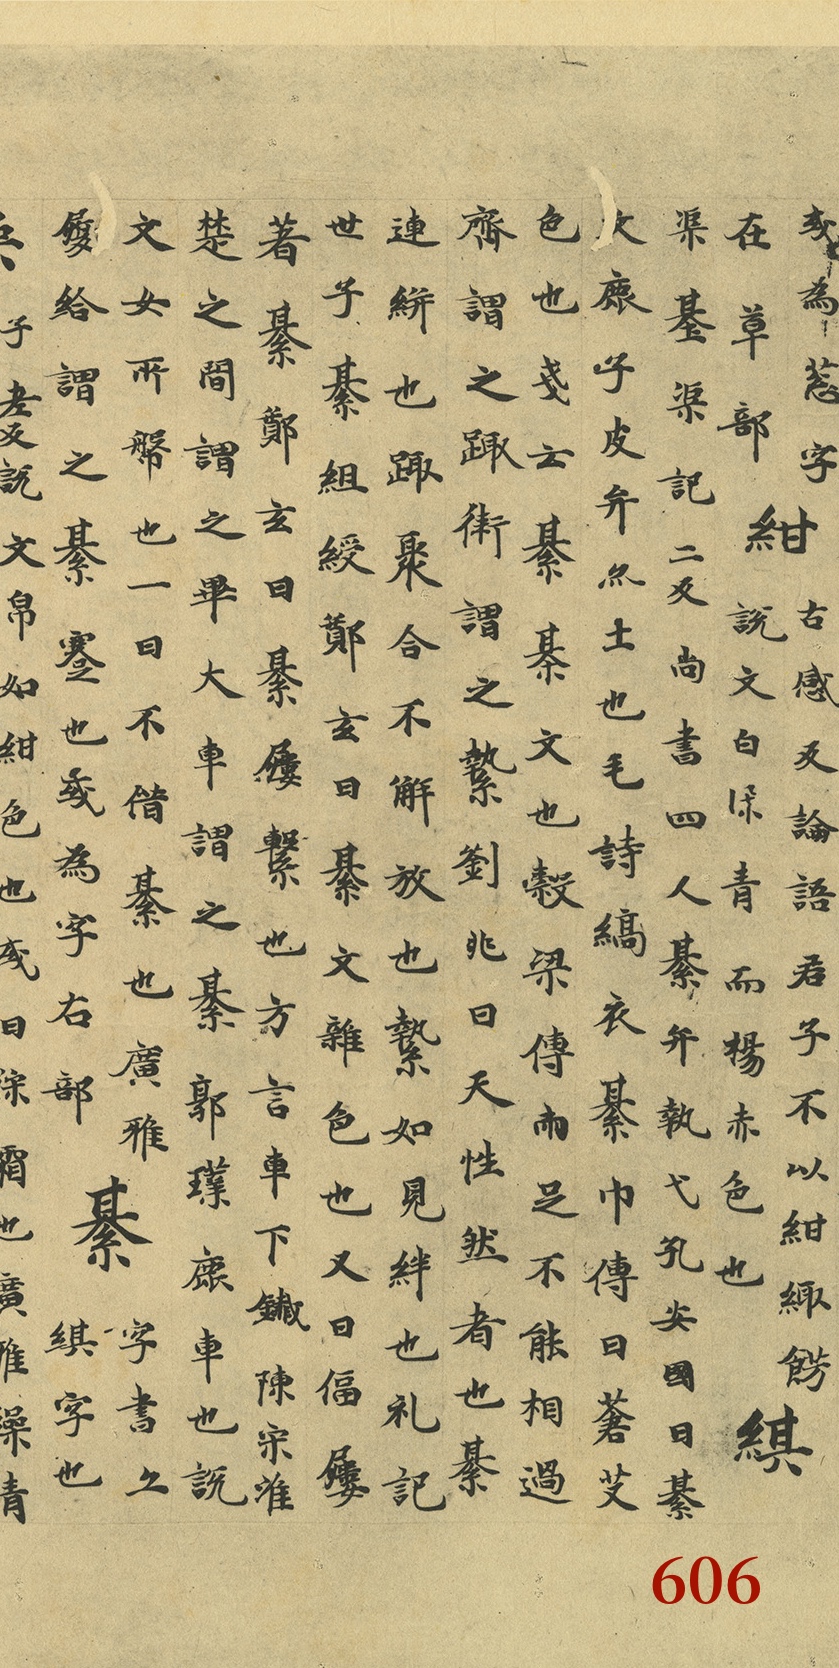 或為䓗字
在草部
紺
古感反論語君子不以紺緅餝
說文白深青而楊赤色也
綨
渠基渠記二反尚書四人綦弁執弋孔安國曰綦
文鹿子皮弁尒士也毛詩縞衣綦巾傳曰蒼艾
色也戔云綦綦文也穀梁傳兩足不能相過
齊謂之踙衛謂之縶劉兆曰天性然者也綦
連絣也踙聚合不解放也縶如見絆也礼記
世子綦組綬鄭玄曰綦文雜色也又曰偪屨
著綦鄭玄曰綦屨繫也方言車下鐵陳宋淮
楚之間謂之畢大車謂之綦郭璞鹿車也說
文女所幣也一曰不借綦也廣雅
屨給謂之綦蹇也或為字右部
綦
字書亦
綨字也
子老反說文帛如紺色也或曰深繒也廣雅繰青
606